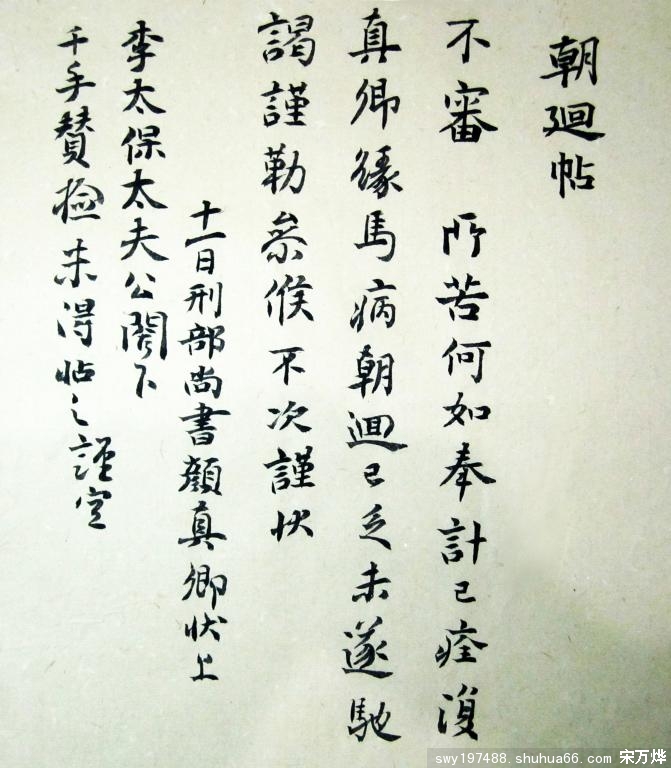 朝迴帖
不審 所苦何如奉計已痊復
真卿緣馬病朝迴已乏未遂馳
謁謹勒祭候不次謹狀
十一日刑部尚書顏真卿狀上
李太保太夫公閤下
千手贊檢未得帖之謹空
swy197488.shuhua66.com 宋万烨